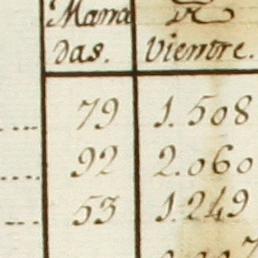 Mama De
das. Vientre.
79 1.508
92 2.060
53 1.249